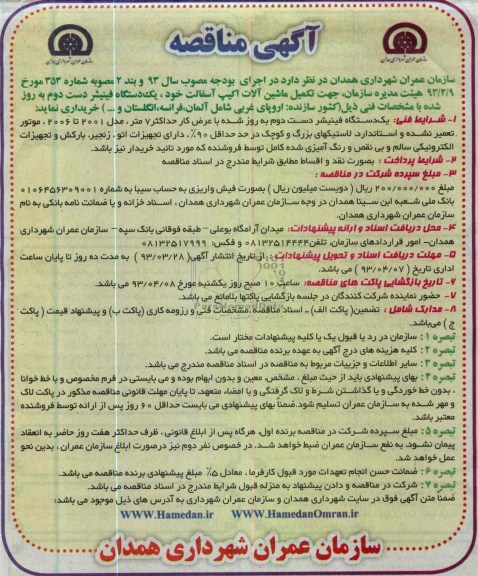 آگهی مناقصه
سازمان عمران شهرداری همدان در نظر دارد در اجرای بودجه مصوب سال ۹۳ و بند ۲ مصوبه شماره ۳۵۳ مورخ
۹۳/۲/۹ هیئت مدیره سازمان، جهت تکمیل ماشین آلات اکیپ آسفالت خود، یکدستگاه فینیشر دست دوم به روز
شده با مشخصات فنی ذیل(کشور سازنده: اروپای غربی شامل آلمان،فرانسه،انگلستان و ... ) خریداری نمایند:
۱- شرایط فنی: یکدستگاه فینیشر دست دوم به روز شده با عرض کار حداکثر۷ متر، مدل ۲۰۰۱ تا ۲۰۰۶ ، موتور
تعمیر نشده و استاندارد، لاستیکهای بزرگ و کوچک در حد حداقل ۹۰٪ ، دارای تجهیزات اتو، زنجیر، بارکش و تجهیزات
الکترونیکی سالم و بی نقص و رنگ آمیزی شده کامل توسط فروشنده که مورد تائید خریدار نیز باشد.
۲- شرایط پرداخت : بصورت نقد و اقساط مطابق شرایط مندرج در اسناد مناقصه
۳-مبلغ سپرده شرکت در مناقصه :
مبلغ ۲۰۰/۰۰۰/۰۰۰ ریال ( دویست میلیون ریال ) بصورت فیش واریزی به حساب سیبا به شماره ۰۱۰۶۴۵۶۳۰۹۰۰۱
بانک ملی شعبه ابن سینا همدان در وجه سازمان عمران شهرداری همدان ، اسناد خزانه و یا ضمانت نامه بانکی به نام
سازمان عمران شهرداری همدان.
۴- محل دریافت اسناد و ارائه پیشنهادات: میدان آرامگاه بوعلی – طبقه فوقانی بانک سپه – سازمان عمران شهرداری
همدان– امور قراردادهای سازمان. تلفن۰۸۱۳۲۵۱۴۴۴۴ و فکس: ۰۸۱۳۲۵۱۷۹۹۹
۵- مهلت دریافت اسناد و تحویل پیشنهادات : از تاریخ انتشار آگهی( ۹۳/۰۳/۲۸ ) به مدت ده روز تا پایان ساعت
اداری تاریخ ( ۹۳/۰۴/۰۷ ) می باشد.
۶- تاریخ بازگشایی پاکت های مناقصه: ساعت ۱۰ صبح روز یکشنبه مورخ ۹۳/۰۴/۰۸ می باشد.
۷- حضور نماینده شرکت کنندگان در جلسه بازگشایی پاکتها بلامانع می باشد.
۸- مدارک شامل : تضمین( پاکت الف) ـ اسناد مناقصه ،مشخصات فنی و رزومه کاری (پاکت ب) و پیشنهاد قیمت ( پاکت
ج ) می‌باشد.
تبصره ۱ : سازمان در رد یا قبول یک یا کلیه پیشنهادات مختار است.
تبصره ۲ : کلیه هزینه های درج آگهی به عهده برنده مناقصه می باشد.
تبصره ۳ : سایر اطلاعات و جزییات مربوط به مناقصه در اسناد مناقصه مندرج می باشد.
تبصره ۴ : بهای پیشنهادی باید از حیث مبلغ ، مشخص، معین و بدون ابهام بوده و می بایستی در فرم مخصوص و با خط خوانا
، بدون خط خوردگی و یا گذاشتن شرط و لاک گرفتگی و با امضاء متعهد، تا پایان مهلت قانونی مناقصه مذکور در پاکت لاک
و مهر شده به سازمان عمران تسلیم شود.ضمناً بهای پیشنهادی می بایست حداقل ۶۰ روز پس از ارائه توسط فروشنده
معتبر باشد.
تبصره ۵ : مبلغ سپرده شرکت در مناقصه برنده اول، هرگاه پس از ابلاغ قانونی ، ظرف حداکثر هفت روز حاضر به انعقاد
پیمان نشود، به نفع سازمان عمران ضبط خواهد شد. در خصوص نفر دوم نیز درصورت ابلاغ سازمان عمران ، بدین نحو
عمل خواهد شد.
تبصره ۶ : ضمانت حسن انجام تعهدات مورد قبول کارفرما ، معادل ۵٪ مبلغ پیشنهادی برنده مناقصه می باشد.
تبصره ۷ : شرکت در مناقصه و دادن پیشنهاد به منزله قبول شرایط مندرج در اسناد مناقصه می باشد.
ضمناً متن آگهی فوق در سایت شهرداری همدان و سازمان عمران شهرداری به آدرس های ذیل موجود می باشد:
Www.HamedanOmran.ir Www.Hamedan.ir
سازمان عمران شهرداری همدان